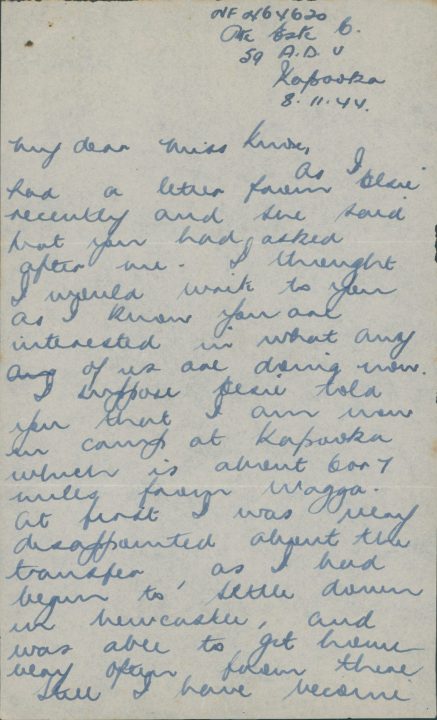 NF 464620
Pte Este C.
59 A.D.U
Kapooka
8.11.44.
My dear Miss
As I
had a letter from Elsie
recently and she said
that you had asked
after me. I thought
I would write to you
as I know you are
interested in what any
any of us are doing now.
I suppose Elsie told
you that I am now
in camp at Kapooka
which is about 6 or 7
miles from Wagga.
At first I was very
disappointed about the
transfer, as I had
begun to settle down
in Newcastle, and
was able to get home
very often from there
Still I have become